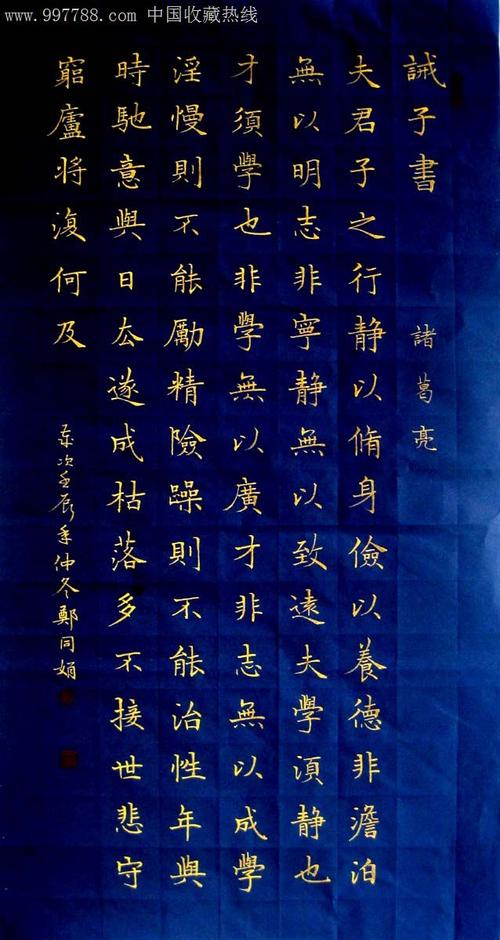 www.997788.com 中国收藏热线
誡子書 諸葛亮
夫君子之行静以脩身儉以養德非澹泊
無以明志非寧静無以致遠夫學須静也
才須學也非學無以廣才非志無以成學
淫慢則不能勵精險躁則不能治性年與
時馳意與日去遂成枯落多不接世悲守
窮廬將復何及
歲次壬辰年仲冬鄭同娟